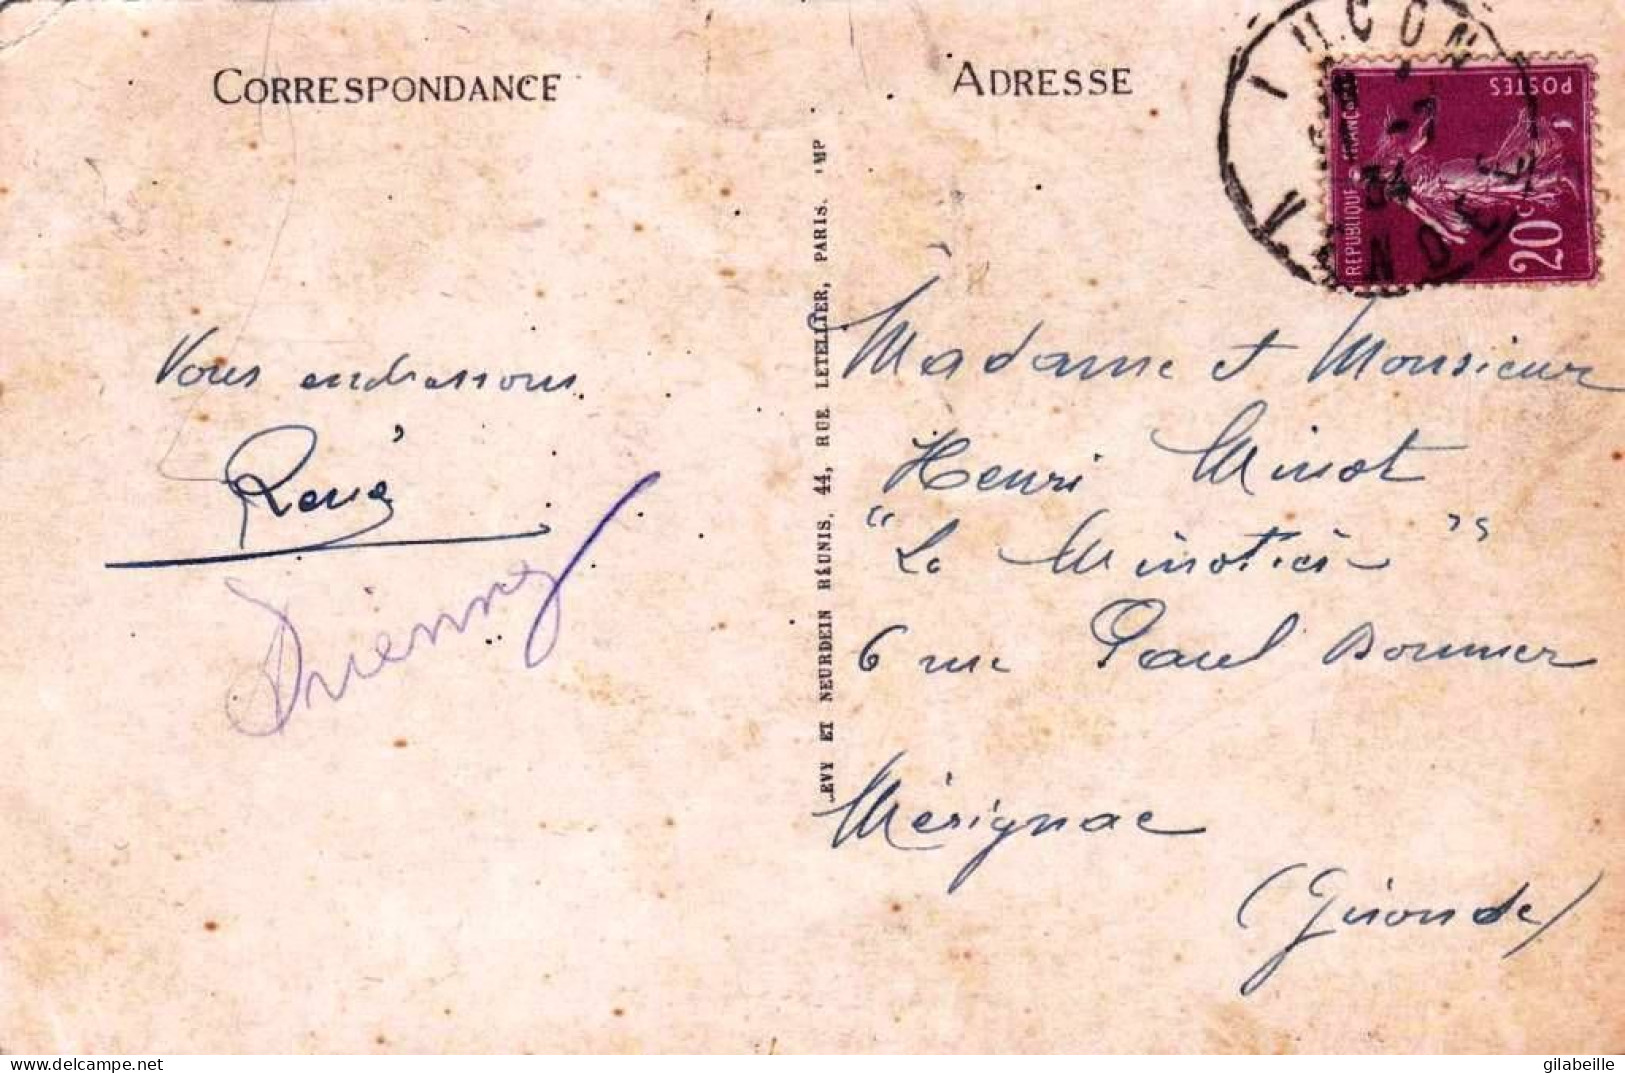 CORRESPONDANCE
Vous embrassons
René
LEVY ET NEURDEIN RÉUNIS, 44, RUE LETELLIER, PARIS. IMP
ADRESSE
LUÇON
34
VENDEE
REPUBLIQUE FRANÇAISE
POSTES
20c
Madame et Monsieur
Henri Minot
"La Minotière"
6 rue Paul Doumer
Mérignac
(Gironde)
www.delcampe.net
gilabeille